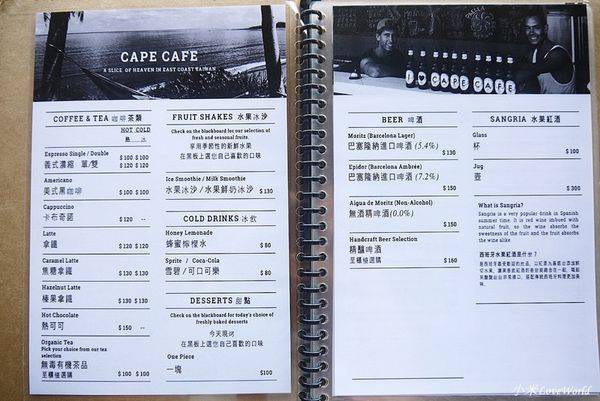 CAPE CAFE
A SLICE OF HEAVEN IN EAST COAST TAIWAN
COFFEE & TEA 咖啡茶類
HOT COLD
熱 冰
Espresso Single / Double $100 $100
義式濃縮 單/雙 $120 $120
Americano
美式黑咖啡 $100 $100
Cappuccino
卡布奇諾 $120 --
Latte
拿鐵 $120 $120
Caramel Latte
焦糖拿鐵 $130 $130
Hazelnut Latte
榛果拿鐵 $130 $130
Hot Chocolate
熱可可 $150 --
Organic Tea
Pick your choice from our tea
selection
無毒有機茶品
至櫃檯選購 $100 $100
FRUIT SHAKES 水果冰沙
Check on the blackboard for our selection of
fresh and seasonal fruits.
享用季節性的新鮮水果
在黑板上選您自己喜歡的口味
Ice Smoothie / Milk Smoothie
水果冰沙/水果鮮奶冰沙 $130
COLD DRINKS 冰飲
Honey Lemonade
蜂蜜檸檬水 $80
Sprite / Coca-Cola
雪碧/可口可樂 $80
DESSERTS 甜點
Check on the blackboard for today's choice of
freshly baked desserts
今天現烤
在黑板上選您自己喜歡的口味
One Piece
一塊 $100
I ♥ CAPE CAFE
BEER 啤酒
Moritz (Barcelona Lager)
巴塞隆納進口啤酒 (5.4%) $130
Epidor (Barcelona Ambrée)
巴塞隆納進口啤酒 (7.2%) $150
Aigua de Moritz (Non-Alcohol)
無酒精啤酒(0.0%) $150
Handcraft Beer Selection
精釀啤酒
至櫃檯選購 $160
SANGRIA 水果紅酒
Glass
杯 $100
Jug
壺 $300
What is Sangria?
Sangria is a very popular drink in Spanish
summer time. It is red wine imbued with
natural fruit, so the wine absorbs the
sweetness of the fruit and the fruit absorbs
the wine alike
西班牙水果紅酒是什麼?
小米LoveWorld